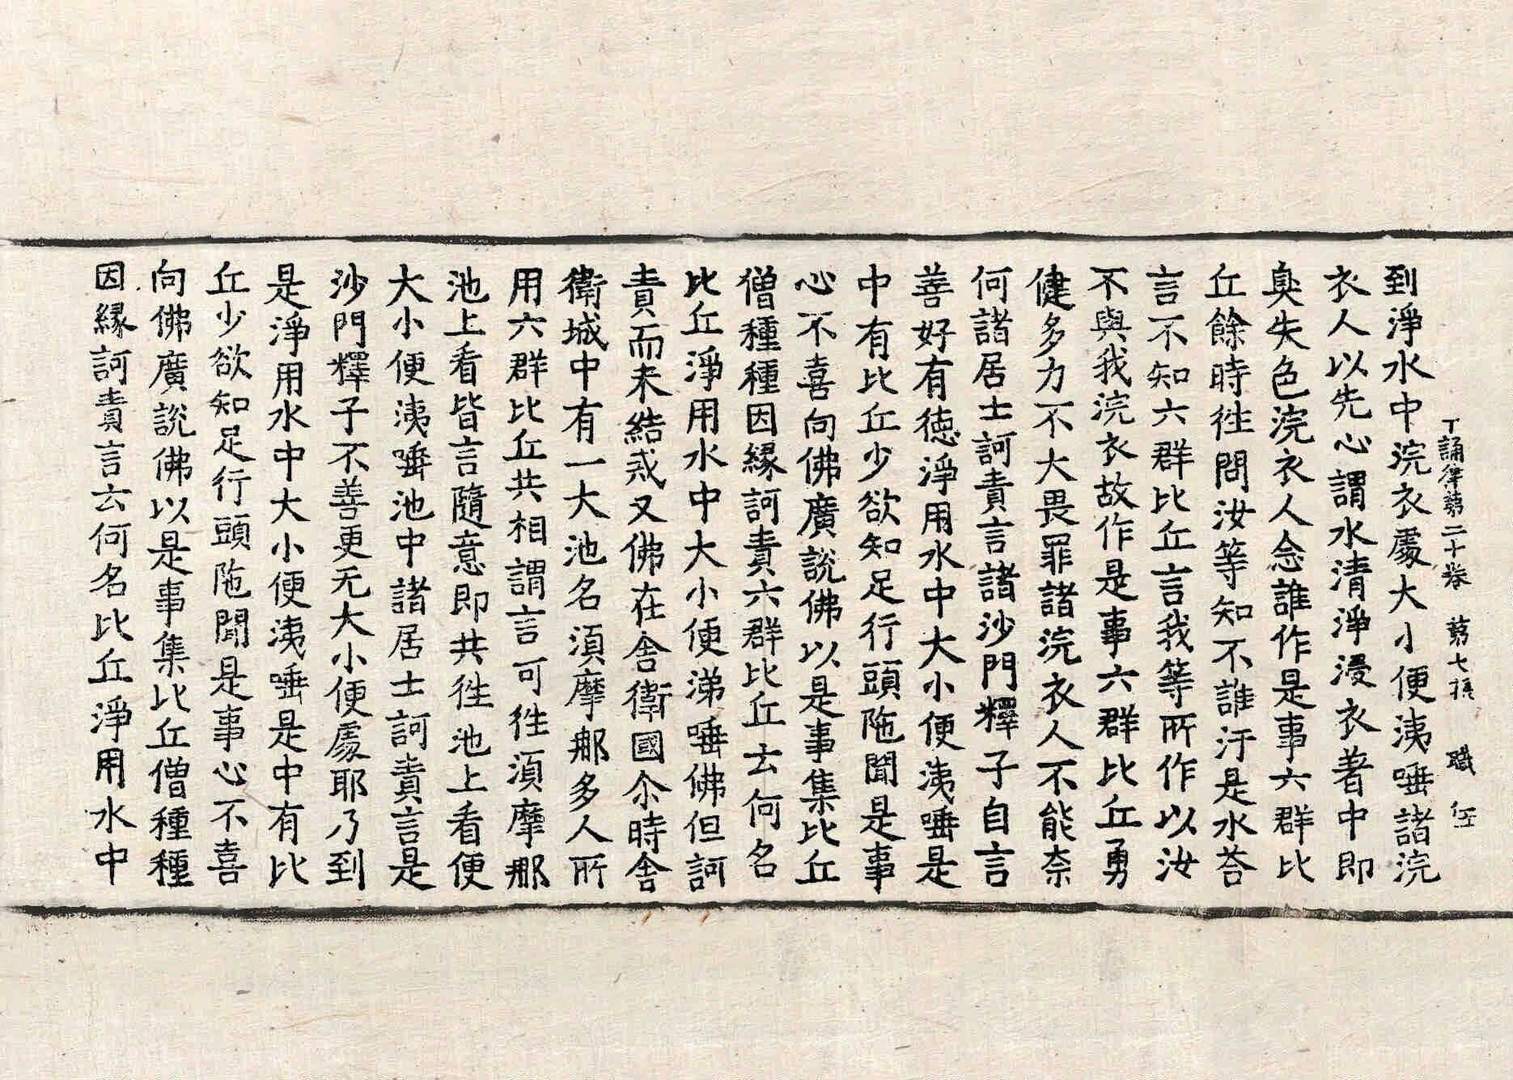 丁誦律苐二十卷 苐七張 職 伍
到淨水中浣衣處大小便洟唾諸浣
衣人以先心謂水清淨浸衣著中即
臭失色浣衣人念誰作是事六群比
丘餘時往問汝等知不誰汙是水荅
言不知六群比丘言我等所作以汝
不與我浣衣故作是事六群比丘勇
健多力不大畏罪諸浣衣人不能奈
何諸居士訶責言諸沙門釋子自言
善好有徳淨用水中大小便洟唾是
中有比丘少欲知足行頭陁聞是事
心不喜向佛廣說佛以是事集比丘
僧種種因緣訶責六群比丘云何名
比丘淨用水中大小便涕唾佛但訶
責而未結戒又佛在舍衛國尒時舍
衛城中有一大池名湏摩那多人所
用六群比丘共相謂言可往湏摩那
池上看皆言隨意即共往池上看便
大小便洟唾池中諸居士訶責言是
沙門釋子不善更无大小便處耶乃到
是淨用水中大小便洟唾是中有比
丘少欲知足行頭陁聞是事心不喜
向佛廣說佛以是事集比丘僧種種
因緣訶責言云何名比丘淨用水中